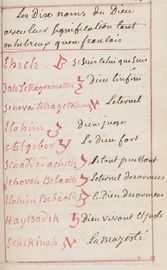 Les Dix noms de Dieu
avec leur signification tant
en hebreux que francais
Ehieh. Je suis celui que suis
Jah Tetragramaton Dieu Infini
Jehova Tetragramaton L'eternel
Elohim Dieu juge
El gibor Le Dieu fort
Schaddai Le tout puissant
Jehovah Sebaoth l'eternel des armees
Elohim Sebaoth le Dieu des armees
Hay Dieu vivant
Schekinah La majesté